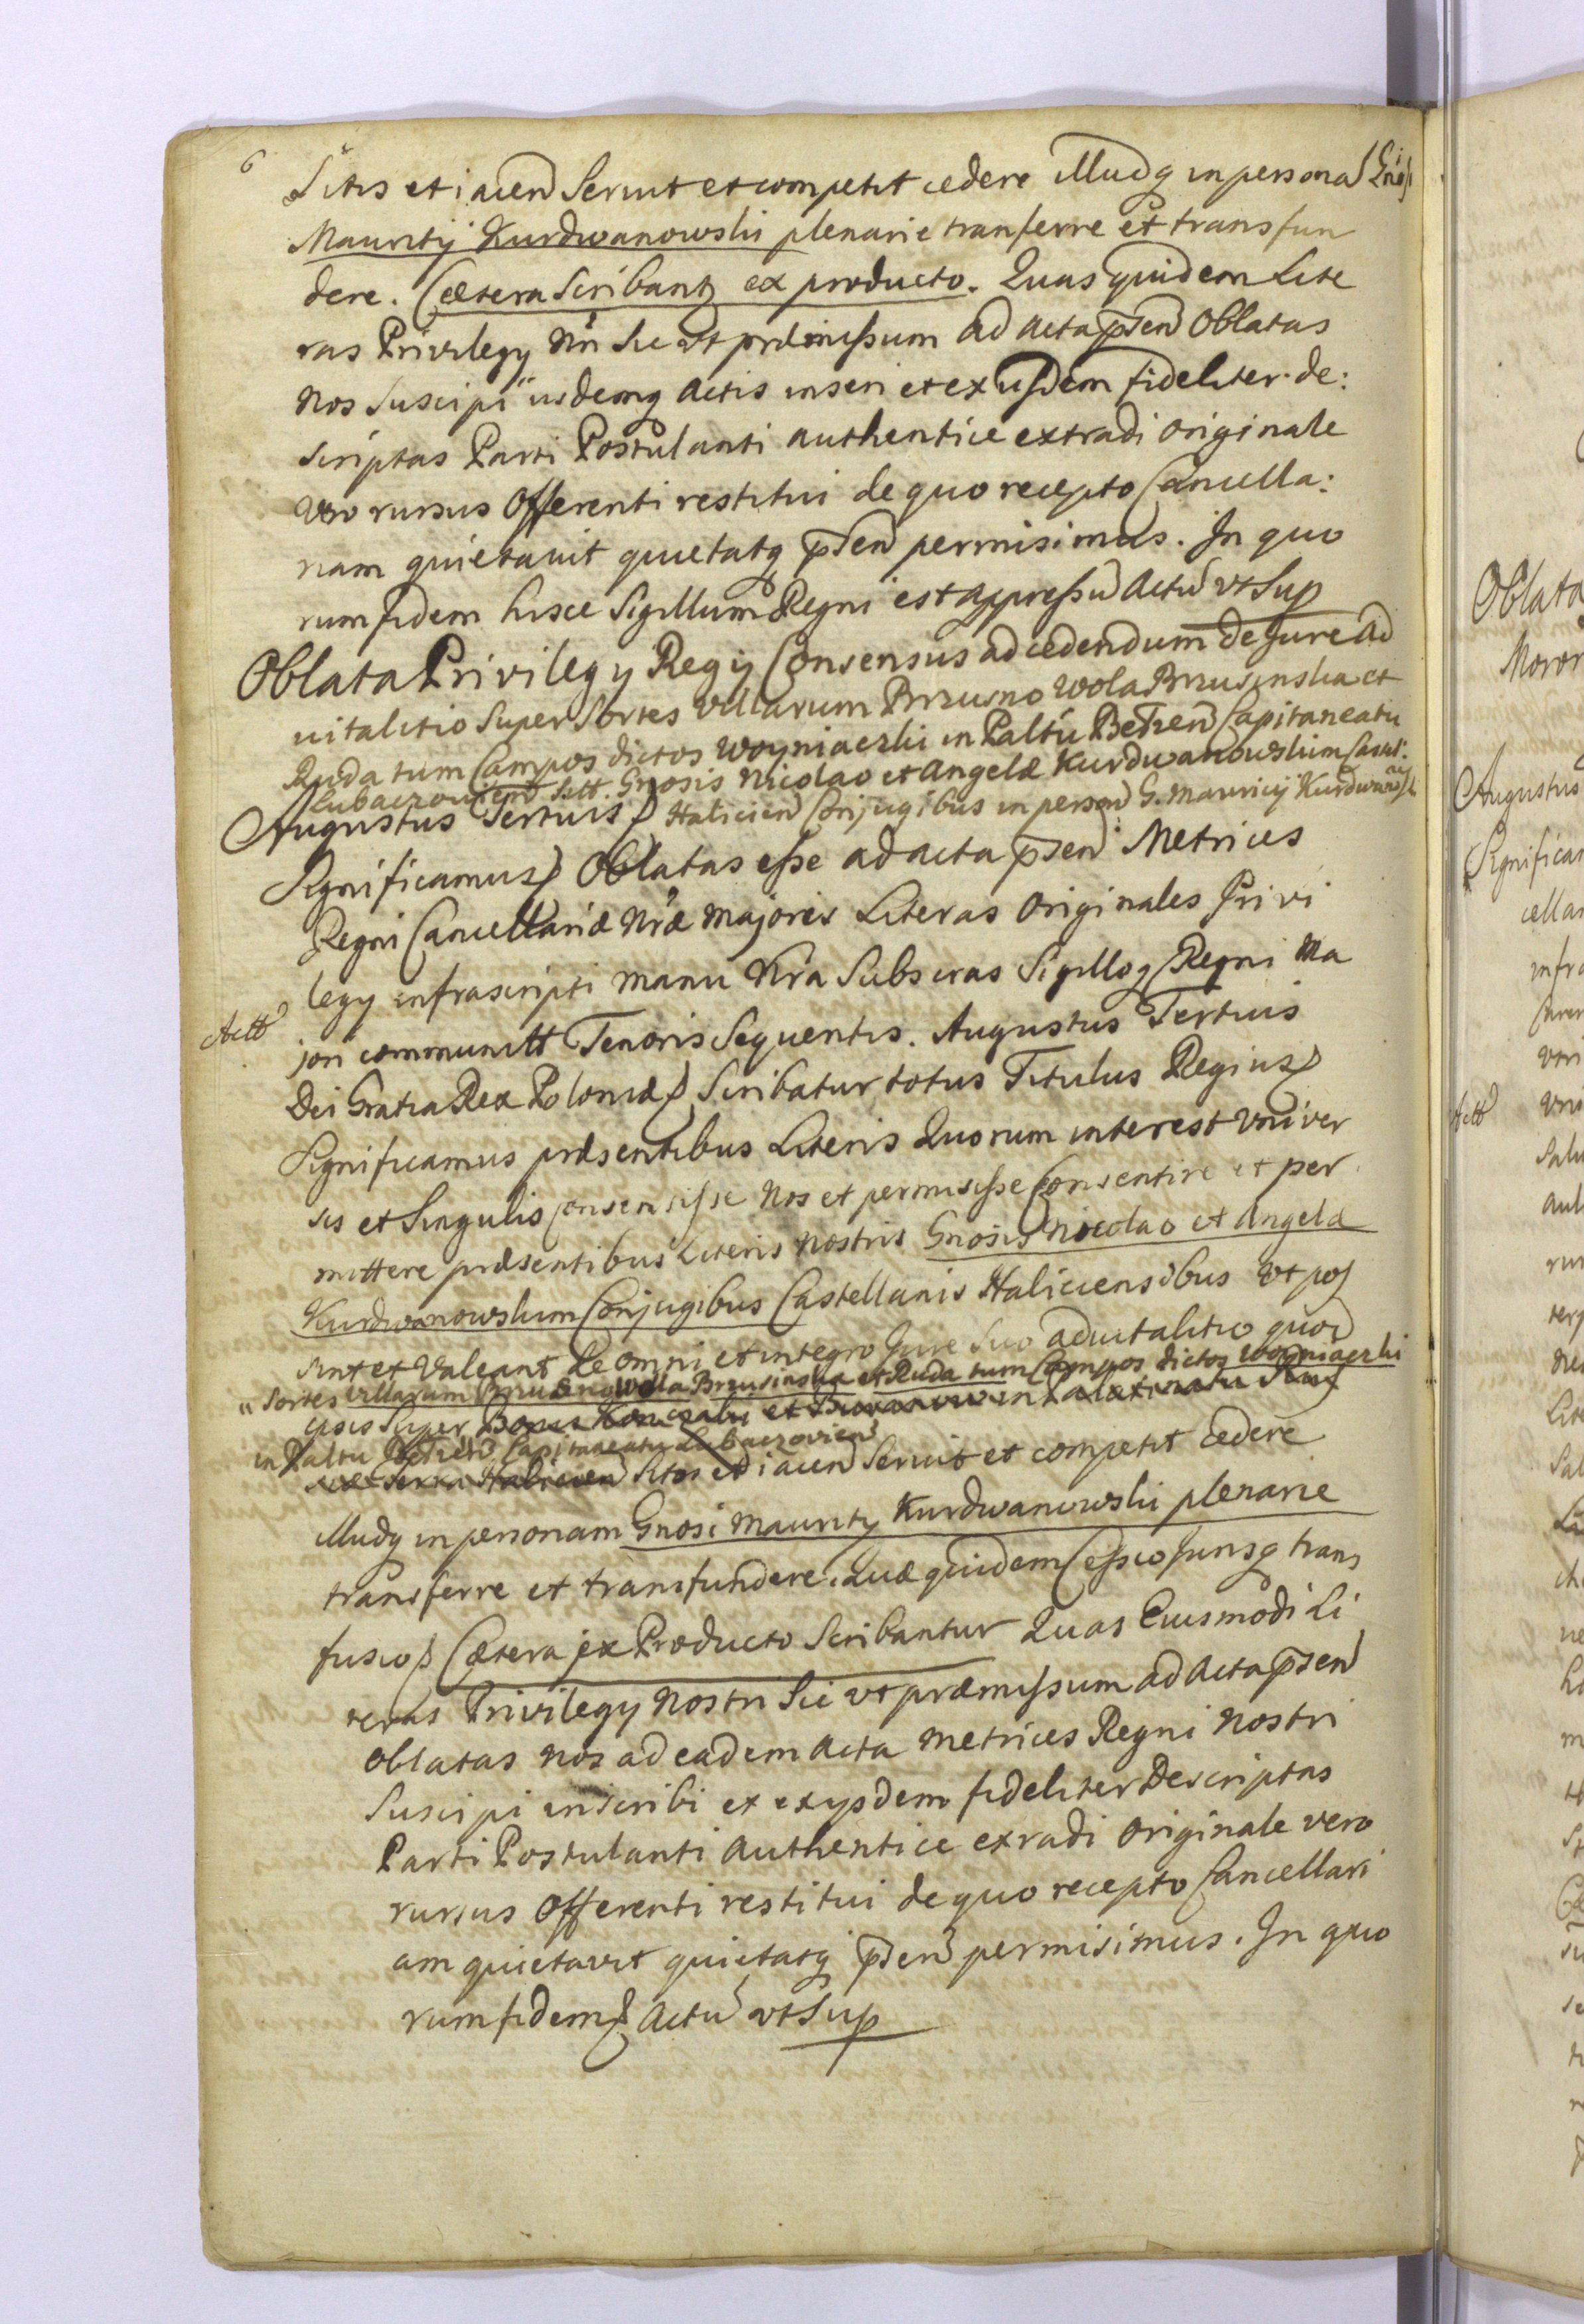 6
Sitis et iacen Seruit et competit cedere illudq in persona Gnosi
Maurity Kurdwanowski plenarie tranferre et transfun
dere. Cætera Scribantq ex producto. Quas quidem Lite
ras Privilegy Nri Sic vt præmissum ad Acta pñsen Oblatas
nos Suscipi iisdemq Actis inseri et ex ijsdem fideliter de:
scriptas Parti Postulanti authentice extradi originale
vero rursus Offerenti restitui de quo recepto Cancella:
riam quietavit quietatq pñsen permisimus. In quo
rum fidem hisce Sigillum Regni est appressū Actū vt Sup
Oblata Privilegy Regij Consensus ad cedendum de Jure ad
uitalitio Super Sortes Villarum Brzusno Wola Brzusinska et
Ruda tum Campos dictos Woyniaczki in Paltū Betzen Capitaneatu
Lubaczovien Sitt. Gnosis Nicolao et Angelæ Kurdwanowskim Castel:
Augustus Tertius) Halicien Conjugibus in person G. Mauricij Kurdwanows
Significamus) Oblatas esse ad acta pñsen Metrices
Regni Cancellariæ Nræ majoris Literas Originales Privi
legy infrascripti manu Nra Subscras Sigilloq Regni Ma
Actt
jori communitt Tenoris Sequentis. Augustus Tertius
Dei Gratia Rex Poloniæ) Scribatur totus Titulus Regius)
Significamus præsentibus Literis Quorum interest vniver
sis et Singulis consensisse nos et permisisse Consentire et per
mittere præsentibus Literis nostris Gnosis Nicolao et Angelæ
Kurdwanowskim Conjugibus Castellanis Haliciensibus vt pos
sint et Valeant de omni et integro Jure Suo aduitalitio quod
"Sortes Villarum Brzusno Wola Brzusinska et Ruda tum Campos dictos Woyniaczki
ipsis Super Bonis et in Palatinatu
in Paltu Betzen Capitaneatu Lubaczovien
Terra Halicien Sitos et iacen Seruit et competit cedere
illudq in personam Gnosi Maurity Kurdwanowski plenarie
transferre et transfundere. Quæ quidem Cessio Jurisq trans
fusio) Cætera ex Producto Scribantur Quas Eiusmodi Li
teras Privilegy Nostri Sic vt præmissum ad Acta pñsen
oblatas nos ad eadem Acta Metrices Regni Nostri
Suscipi inscribi et exijsdem fideliter Descriptas
Parti Postulanti Authentice exradi Originale vero
rursus Offerenti restitui de quo recepto Cancellari
am quietavit quietatq pñsen permisimus. In quo
rum fidem) Actū vt Sup
Oblata
Augustus
Actt